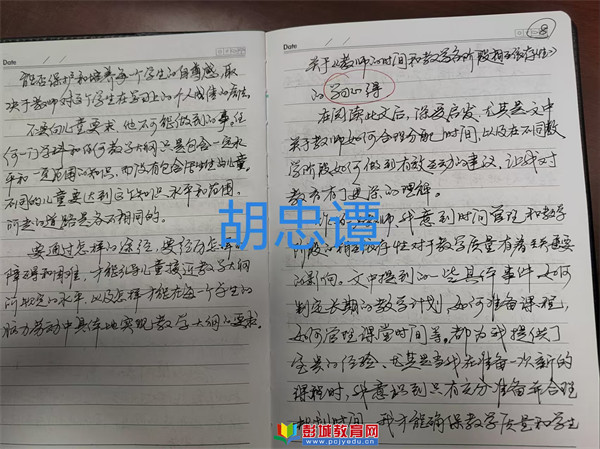 Date
能否保护和培养每个学生的自尊感,取
决于教师对这个学生在学习上的个人成绩的看法。
不要向儿童要求他不可能做到的事。任
何一门学科和任何教学大纲只是包含一定水
平和一定范围的知识,而没有包含活生生的儿童。
不同的儿童要达到这个知识水平和范围,
所走的道路是各不相同的。
要通过怎样的途径,要经历怎样的
障碍和困难,才能引导儿童接近教学大纲
所规定的水平,以及怎样才能在每一个学生的
脑力劳动中具体地实现教学大纲的要求。
8
Date
关于《教师的时间和教学各阶段相互依存性》
的学习心得
在阅读此文后,深受启发,尤其是文中
关于教师如何合理分配时间,以及在不同教
学阶段如何做到有效互动的建议,让我对
教育有了更深的理解。
作为教师,我意识到时间管理和教学
阶段的相互依存性对于教学质量有着至关重要
的影响。文中提到的一些具体事件,如何
制定长期的教学计划,如何准备课程,
如何管理课堂时间等。都为我提供了
宝贵的经验。尤其是当我在准备一次新的
课程时,我意识到只有充分准备并合理
规划时间,我才能确保教学质量和学生
胡忠谭
彭城教育网